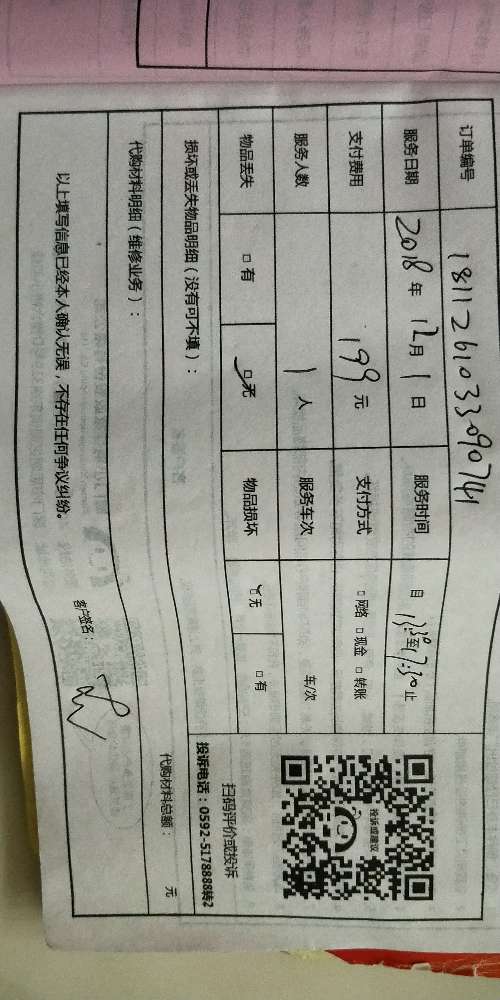 订单编号 1811261033090741
服务日期 2018年12月1日 服务时间 自13:30至17:30止
支付费用 199元 支付方式 □网络 □现金 □转账
服务人数 1人 服务车次 车/次
物品丢失 □有 □无 物品损坏 □无 □有
损坏或丢失物品明细（没有可不填）：
代购材料明细（维修业务）： 代购材料总额： 元
以上填写信息已经本人确认无误，不存在任何争议纠纷。
客户签名：
投诉或建议
扫码评价或投诉
投诉电话：0592-5178888转2